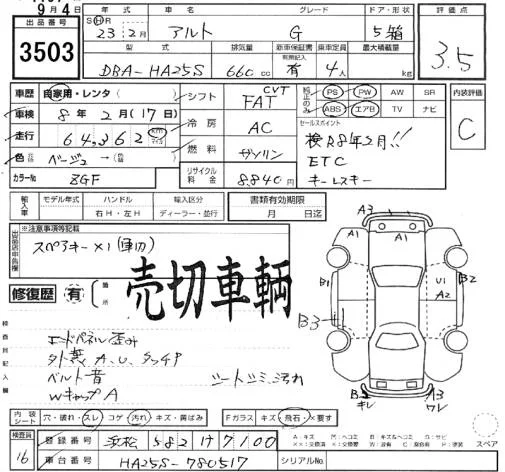 9月4日
出品番号
3503
年式 車名 グレード ドア・形状
SⒽR 23 年 2月 アルト G 5箱
型式 排気量 新車保証書 乗車定員 最大積載量
DBA-HA25S 660 cc 有 4人 kg
評価点
3.5
車歴 自家用・レンタ( )
車検 8年 2月(17日)
走行 64,362 km
色 ベージュ →( )
カラーNo ZGF
シフト CVT FAT
冷房 AC
燃料 ガソリン
リサイクル料金 8,840円
純正のみ PS PW AW SR
ABS エアB TV ナビ
セールスポイント
検R8年2月!!
ETC
キーレスキー
内装評価
C
輸入車 モデル年式 ハンドル 輸入区分
年 右H・左H ディーラー・並行
書類有効期限
月 日迄
※注意事項等記載
スペアキー×1
修復歴 有 箇所
売切車輌
検査員記入欄
エンドパネル歪み
外装 A、U、タッチP
ベルト音
シートシミ、汚れ
WキャップA
A3
A1 A1
B1 B2
U1
A2
B3
B2 キレ
A3 ワレ
内装シート 穴・破れ・スレ コゲ 汚れ キズ・黄ばみ
Fガラス キズ 飛石 ×要す
スペア
検査員
16
登録番号 浜松 582 け 7100
車台番号 HA25S-780517
シリアルNo.